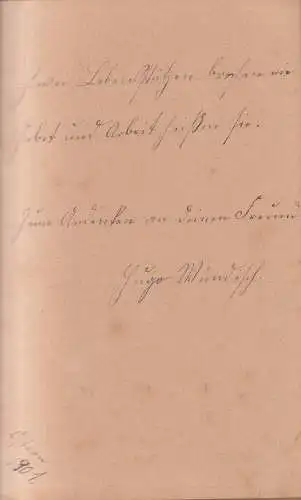 Zwei Lebensstützen brechen nie
Gebet und Arbeit heißen sie.
Zum Andenken an deinen Freund
Hugo Wündisch.
1901